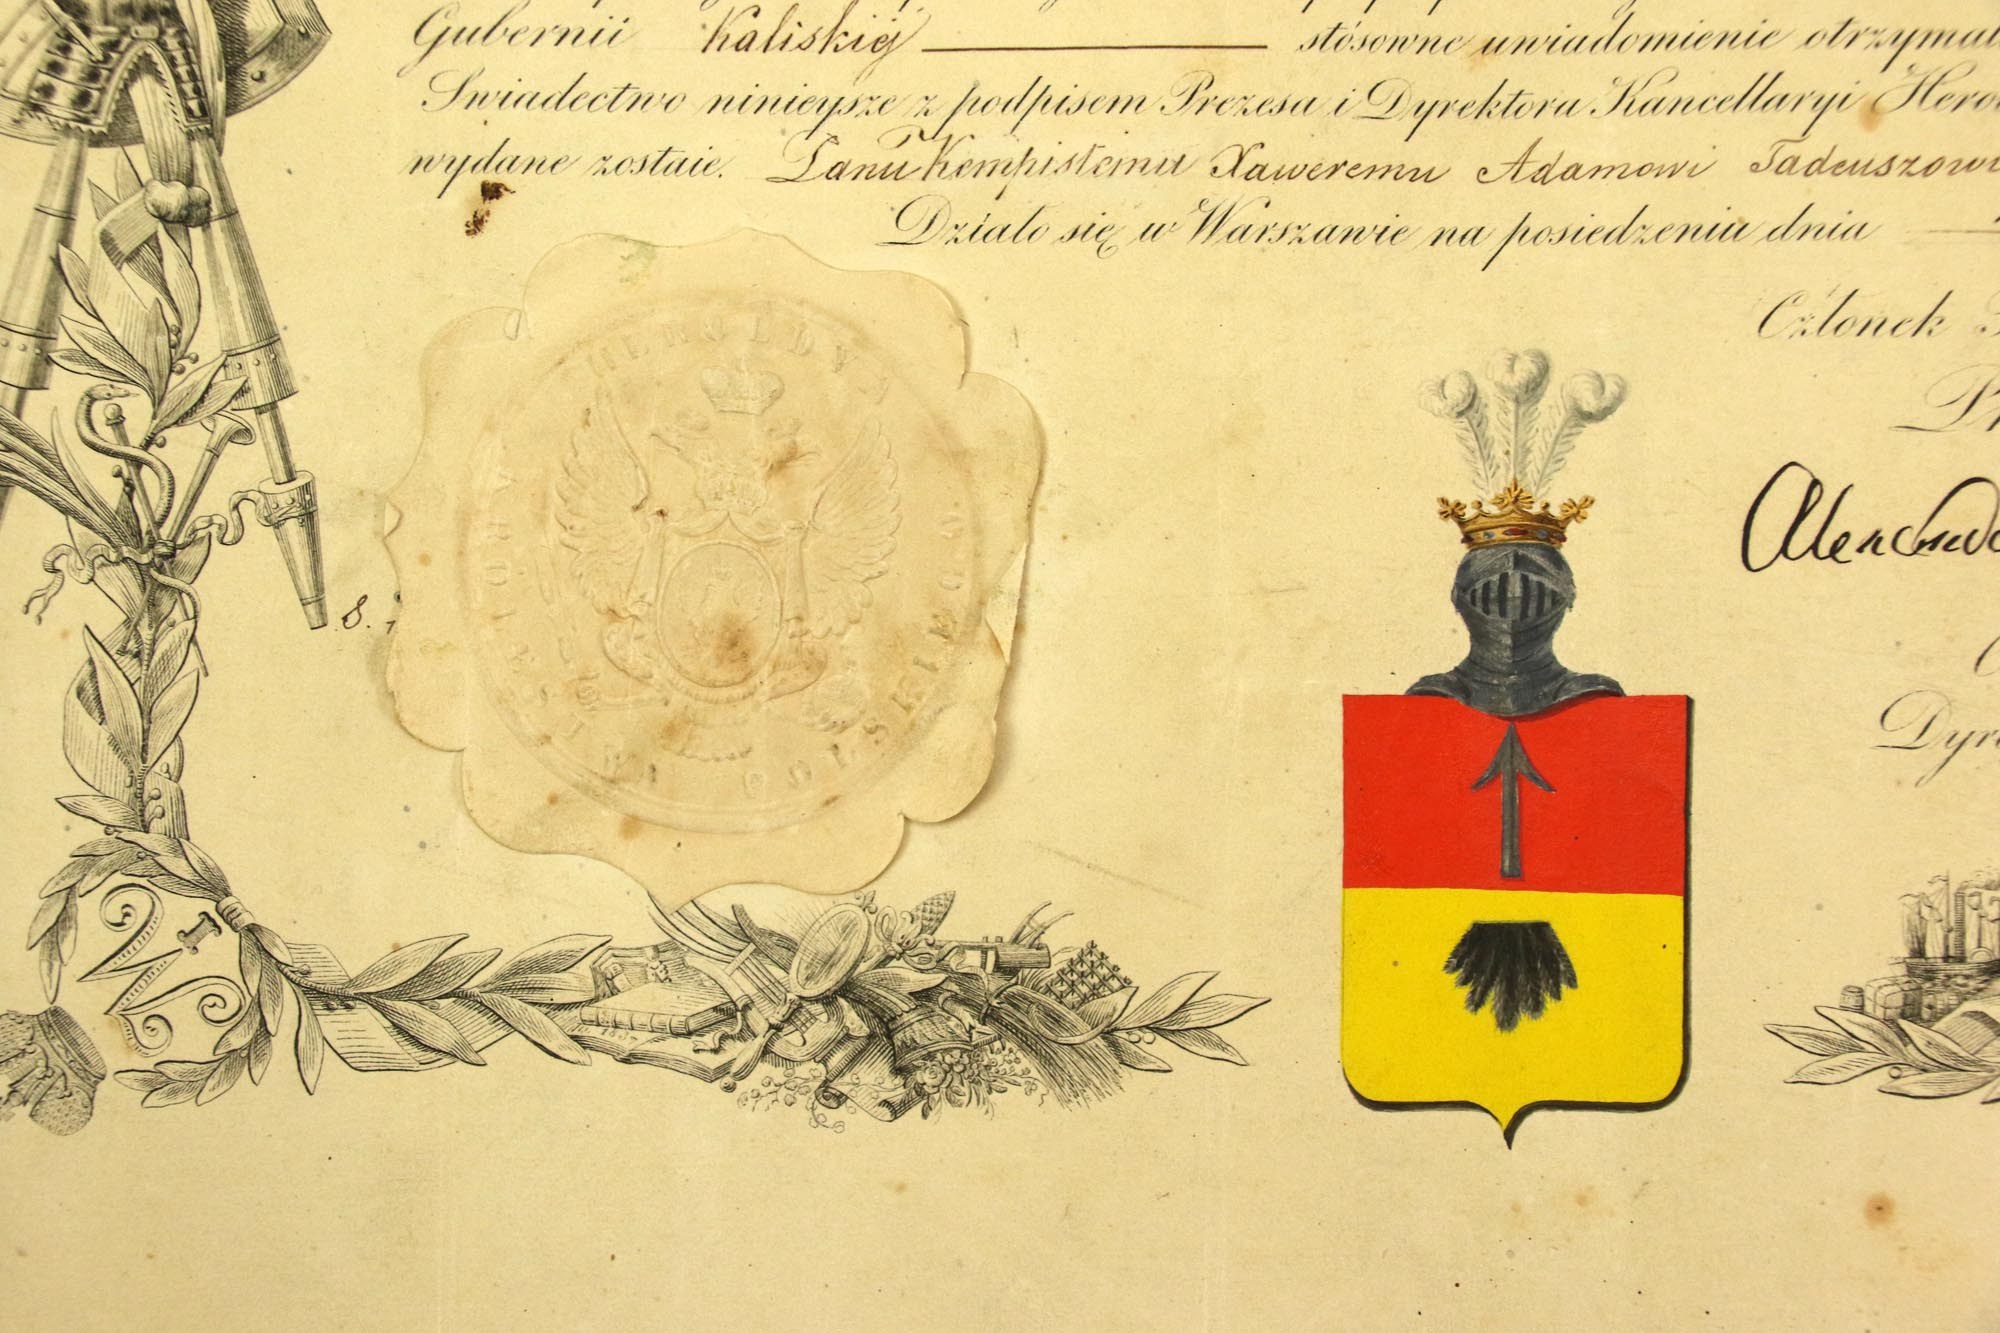 Gubernii Kaliskiéj stósowne uwiadomienie otrzymał
Swiadectwo ninieysze z podpisem Prezesa i Dyrektora Kancellaryi Hero
wydane zostaie. Panu Kempistemu Xaweremu Adamowi Tadeuszowi
Działo się w Warszawie na posiedzeniu dnia
Członek
HEROLDYA
KRÓLESTWA POLSKIEGO
Alexand
Dyr
8.